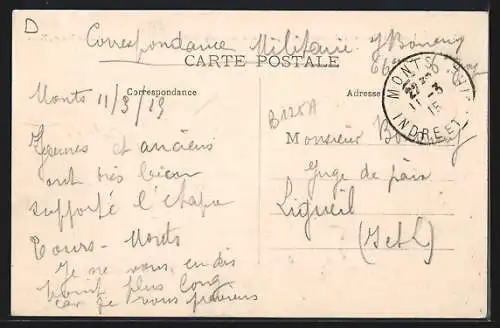 D
Correspondance Militaire
CARTE POSTALE
Correspondance
Adresse
MONTS INDRE ET
11 -3 15
Monts 11/3/15
B125A
Monsieur
Jeunes et anciens
ont très bien
supporté l'étape
Tours - Monts
Je ne vous en dis
point plus long
car je vous
Juge de paix
Ligueil
(I et L)